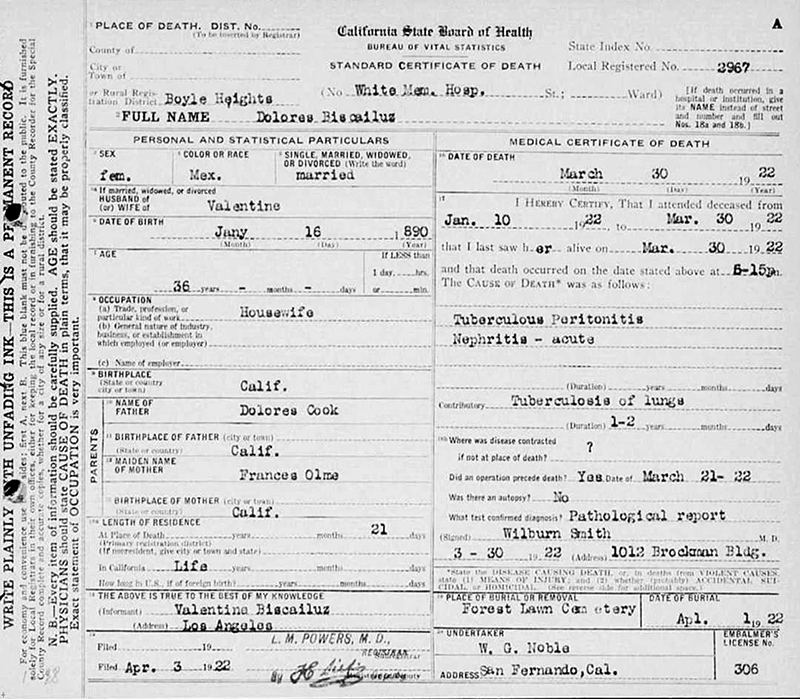 A
PLACE OF DEATH. DIST. No.
(To be inserted by Registrar)
California State Board of Health
BUREAU OF VITAL STATISTICS
STANDARD CERTIFICATE OF DEATH
County of
State Index No.
City or
Town of
Local Registered No. 3967
or Rural Regis-
tration District Boyle Heights
(No. White Mem. Hosp. St.; Ward)
[If death occurred in a
hospital or institution, give
its NAME instead of street
and number and fill out
Nos. 18a and 18b.]
FULL NAME Dolores Biscailuz
PERSONAL AND STATISTICAL PARTICULARS
SEX
fem.
COLOR OR RACE
Mex.
SINGLE, MARRIED, WIDOWED,
OR DIVORCED (Write the word)
married
If married, widowed, or divorced
HUSBAND of
(or) WIFE of Valentine
DATE OF BIRTH
Jany 16 1890
(Month) (Day) (Year)
AGE
If LESS than
1 day, hrs.
36 years - months - days
or min.
OCCUPATION
(a) Trade, profession, or
particular kind of work Housewife
(b) General nature of industry,
business, or establishment in
which employed (or employer)
(c) Name of employer
BIRTHPLACE
(State or country
city or town) Calif.
PARENTS
NAME OF
FATHER Dolores Cook
BIRTHPLACE OF FATHER (city or town)
(State or country) Calif.
MAIDEN NAME
OF MOTHER Frances Olme
BIRTHPLACE OF MOTHER (city or town)
(State or country) Calif.
LENGTH OF RESIDENCE
At Place of Death years months 21 days
(Primary registration district)
(If nonresident, give city or town and state)
In California Life years months days
How long in U.S., if of foreign birth? years months days
THE ABOVE IS TRUE TO THE BEST OF MY KNOWLEDGE
(Informant) Valentine Biscailuz
(Address) Los Angeles
Filed 19 L. M. POWERS, M. D.,
REGISTRAR
Filed Apr. 3 1922 By
MEDICAL CERTIFICATE OF DEATH
DATE OF DEATH
March 30 1922
(Month) (Day) (Year)
I HEREBY CERTIFY, That I attended deceased from
Jan. 10 1922 to Mar. 30 1922
that I last saw her alive on Mar. 30 1922
and that death occurred on the date stated above at 6-15pm.
The CAUSE OF DEATH* was as follows:
Tuberculous Peritonitis
Nephritis - acute
(Duration) years months days
Contributory Tuberculosis of lungs
(Duration) 1-2 years months days
Where was disease contracted
if not at place of death? ?
Did an operation precede death? Yes Date of March 21- 22
Was there an autopsy? No
What test confirmed diagnosis? Pathological report
(Signed) Wilburn Smith M. D.
3 - 30 1922 (Address) 1012 Brockman Bldg.
*State the DISEASE CAUSING DEATH, or, in deaths from VIOLENT CAUSES,
state (1) MEANS OF INJURY; and (2) whether (probably) ACCIDENTAL, SUI-
CIDAL, or HOMICIDAL. (See reverse side for additional space.)
PLACE OF BURIAL OR REMOVAL
Forest Lawn Cemetery
DATE OF BURIAL
Apl. 1, 1922
UNDERTAKER
W. G. Noble
ADDRESS San Fernando, Cal.
EMBALMER'S
LICENSE No.
306
WRITE PLAINLY WITH UNFADING INK—THIS IS A PERMANENT RECORD
N. B.—Every item of information should be carefully supplied. AGE should be stated EXACTLY.
PHYSICIANS should state CAUSE OF DEATH in plain terms, that it may be properly classified.
Exact statement of OCCUPATION is very important.